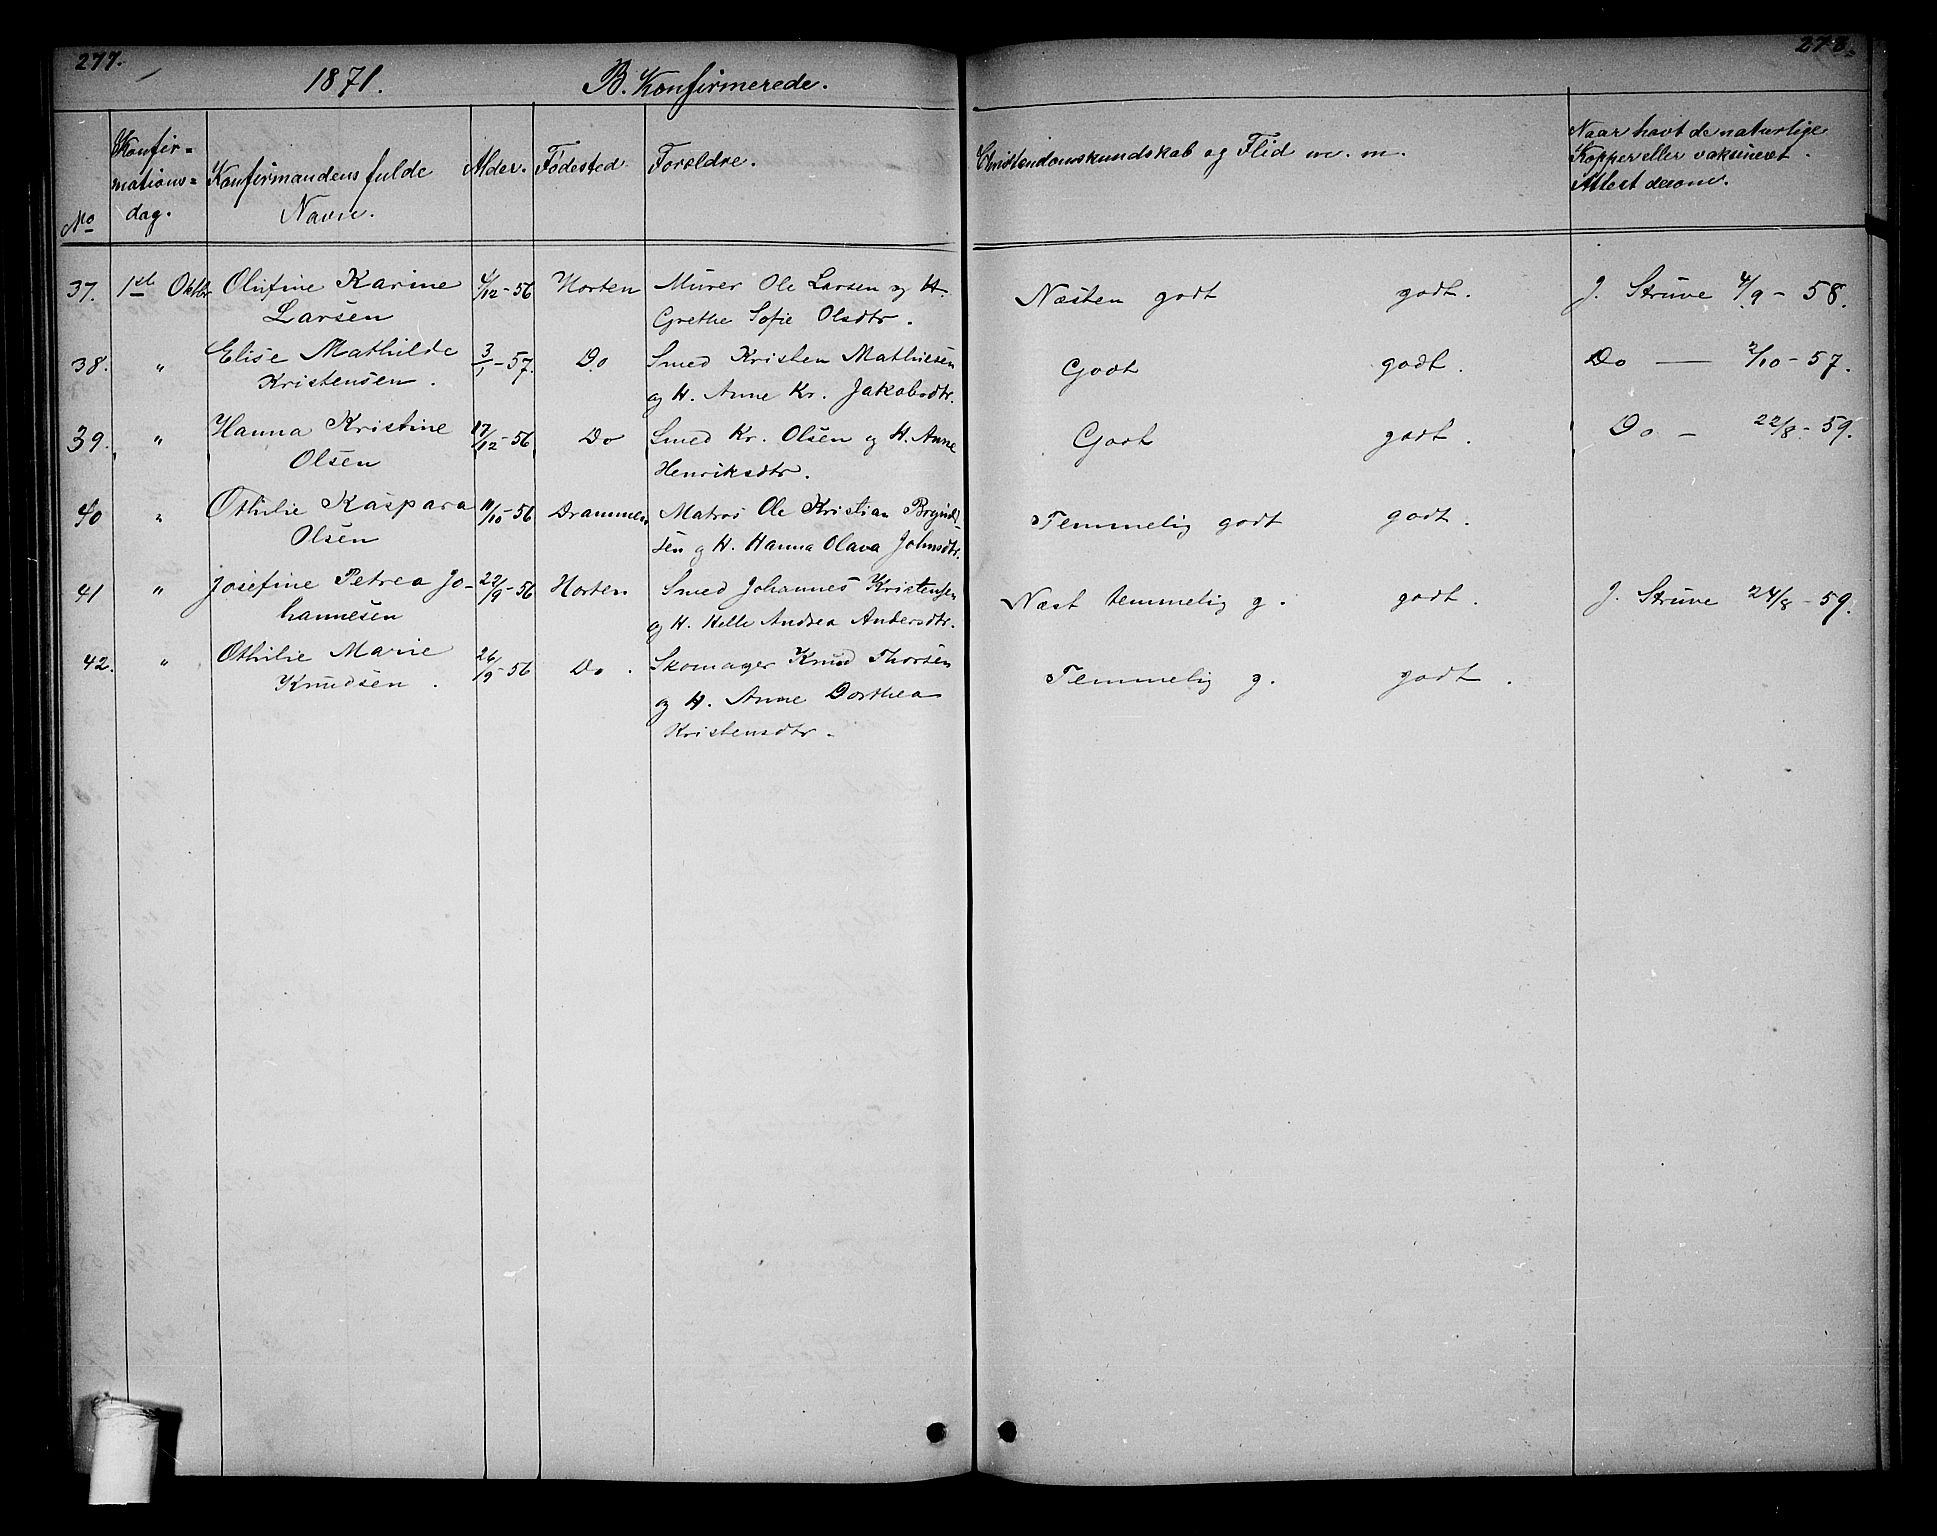 277.
278.
1871. B. Konfirmerede.
No
Konfir=
mations=
dag.
Konfirmandens fulde
Navn.
Alder.
Fødested
Forældre.
Christendomskundskab og Flid m. m.
Naar havt de naturlige
Kopper eller vaksineret.
Attest derom.
37. 1ste Oktbr Olufine Karine 4/12-56 Horten Murer Ole Larsen og H. Næsten godt godt. J. Struve 4/9-58.
Larsen Grethe Sofie Olsdtr.
38. " Elise Mathilde 3/1-57. Do Smed Kristen Mathiesen Godt godt. Do — 2/10-57.
Kristensen. og H. Anne Kr. Jakobsdtr.
39. " Hanna Kristine 17/12-56 Do Smed Kr. Olsen og H. Anne Godt godt. Do - 22/8-59.
Olsen Henriksdtr.
40 " Othilie Kaspara 11/10-56 Drammen Matros Ole Kristian Temmelig godt godt.
Olsen sen og H. Hanna Olava Johnsdtr.
41 " Josefine Petrea Jo- 22/9-56 Horten Smed Johannes Kristensen Næst temmelig g. godt. J. Struve 24/8-59.
hannesen og H. Helle Andrea Andersdtr.
42. " Othilie Marie 26/9-56 Do. Skomager Knud Thorsen Temmelig g. godt.
Knudsen. og H. Anne Dorthea
Kristensdtr.